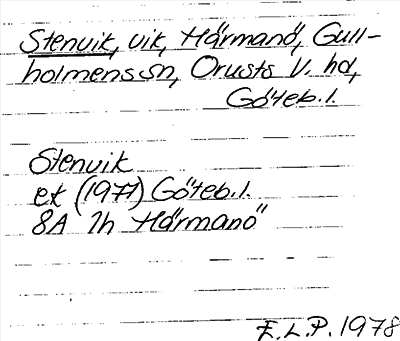 Stenvik, vik, Härmanö, Gull-
holmens sn, Orusts V. hd,
Göteb.l.
Stenvik
ek (1977) Göteb.l.
8A 1h Härmanö
E.L.P. 1978